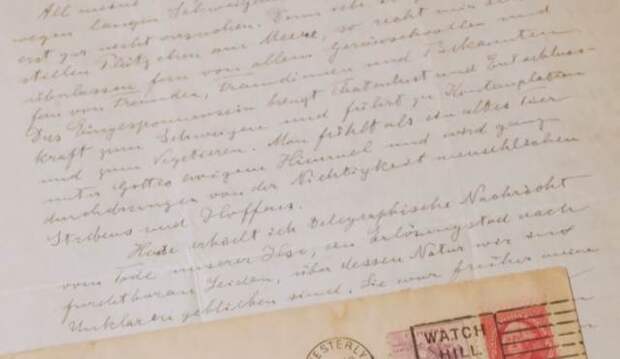 All meine
wegen langen Schweigens
erst gar nicht aussuchen. Denn ich
stillen Plätzchen am Meere, so recht mir selbst
überlassen fern von allem Geräuschvollen und
fern von Fremden, Freundinnen und Bekannten.
Das Eingesponnensein hängt Thatenlust und Entschluss-
kraft zum Schweigen und führt zu Kontemplation
und zum Vegetieren. Man fühlt als ein altes Tier
unter Gottes ewigem Himmel und wird ganz
durchdrungen von der Nichtigkeit menschlichen
Strebens und Hoffens.
Heute erhielt ich telegraphische Nachricht
vom Tode unserer Ilse, ein Erlösungstod nach
furchtbaren Leiden, über dessen Natur wir sind
Unklaren geblieben sind. Sie war früher meine
WESTERLY
WATCH
HILL